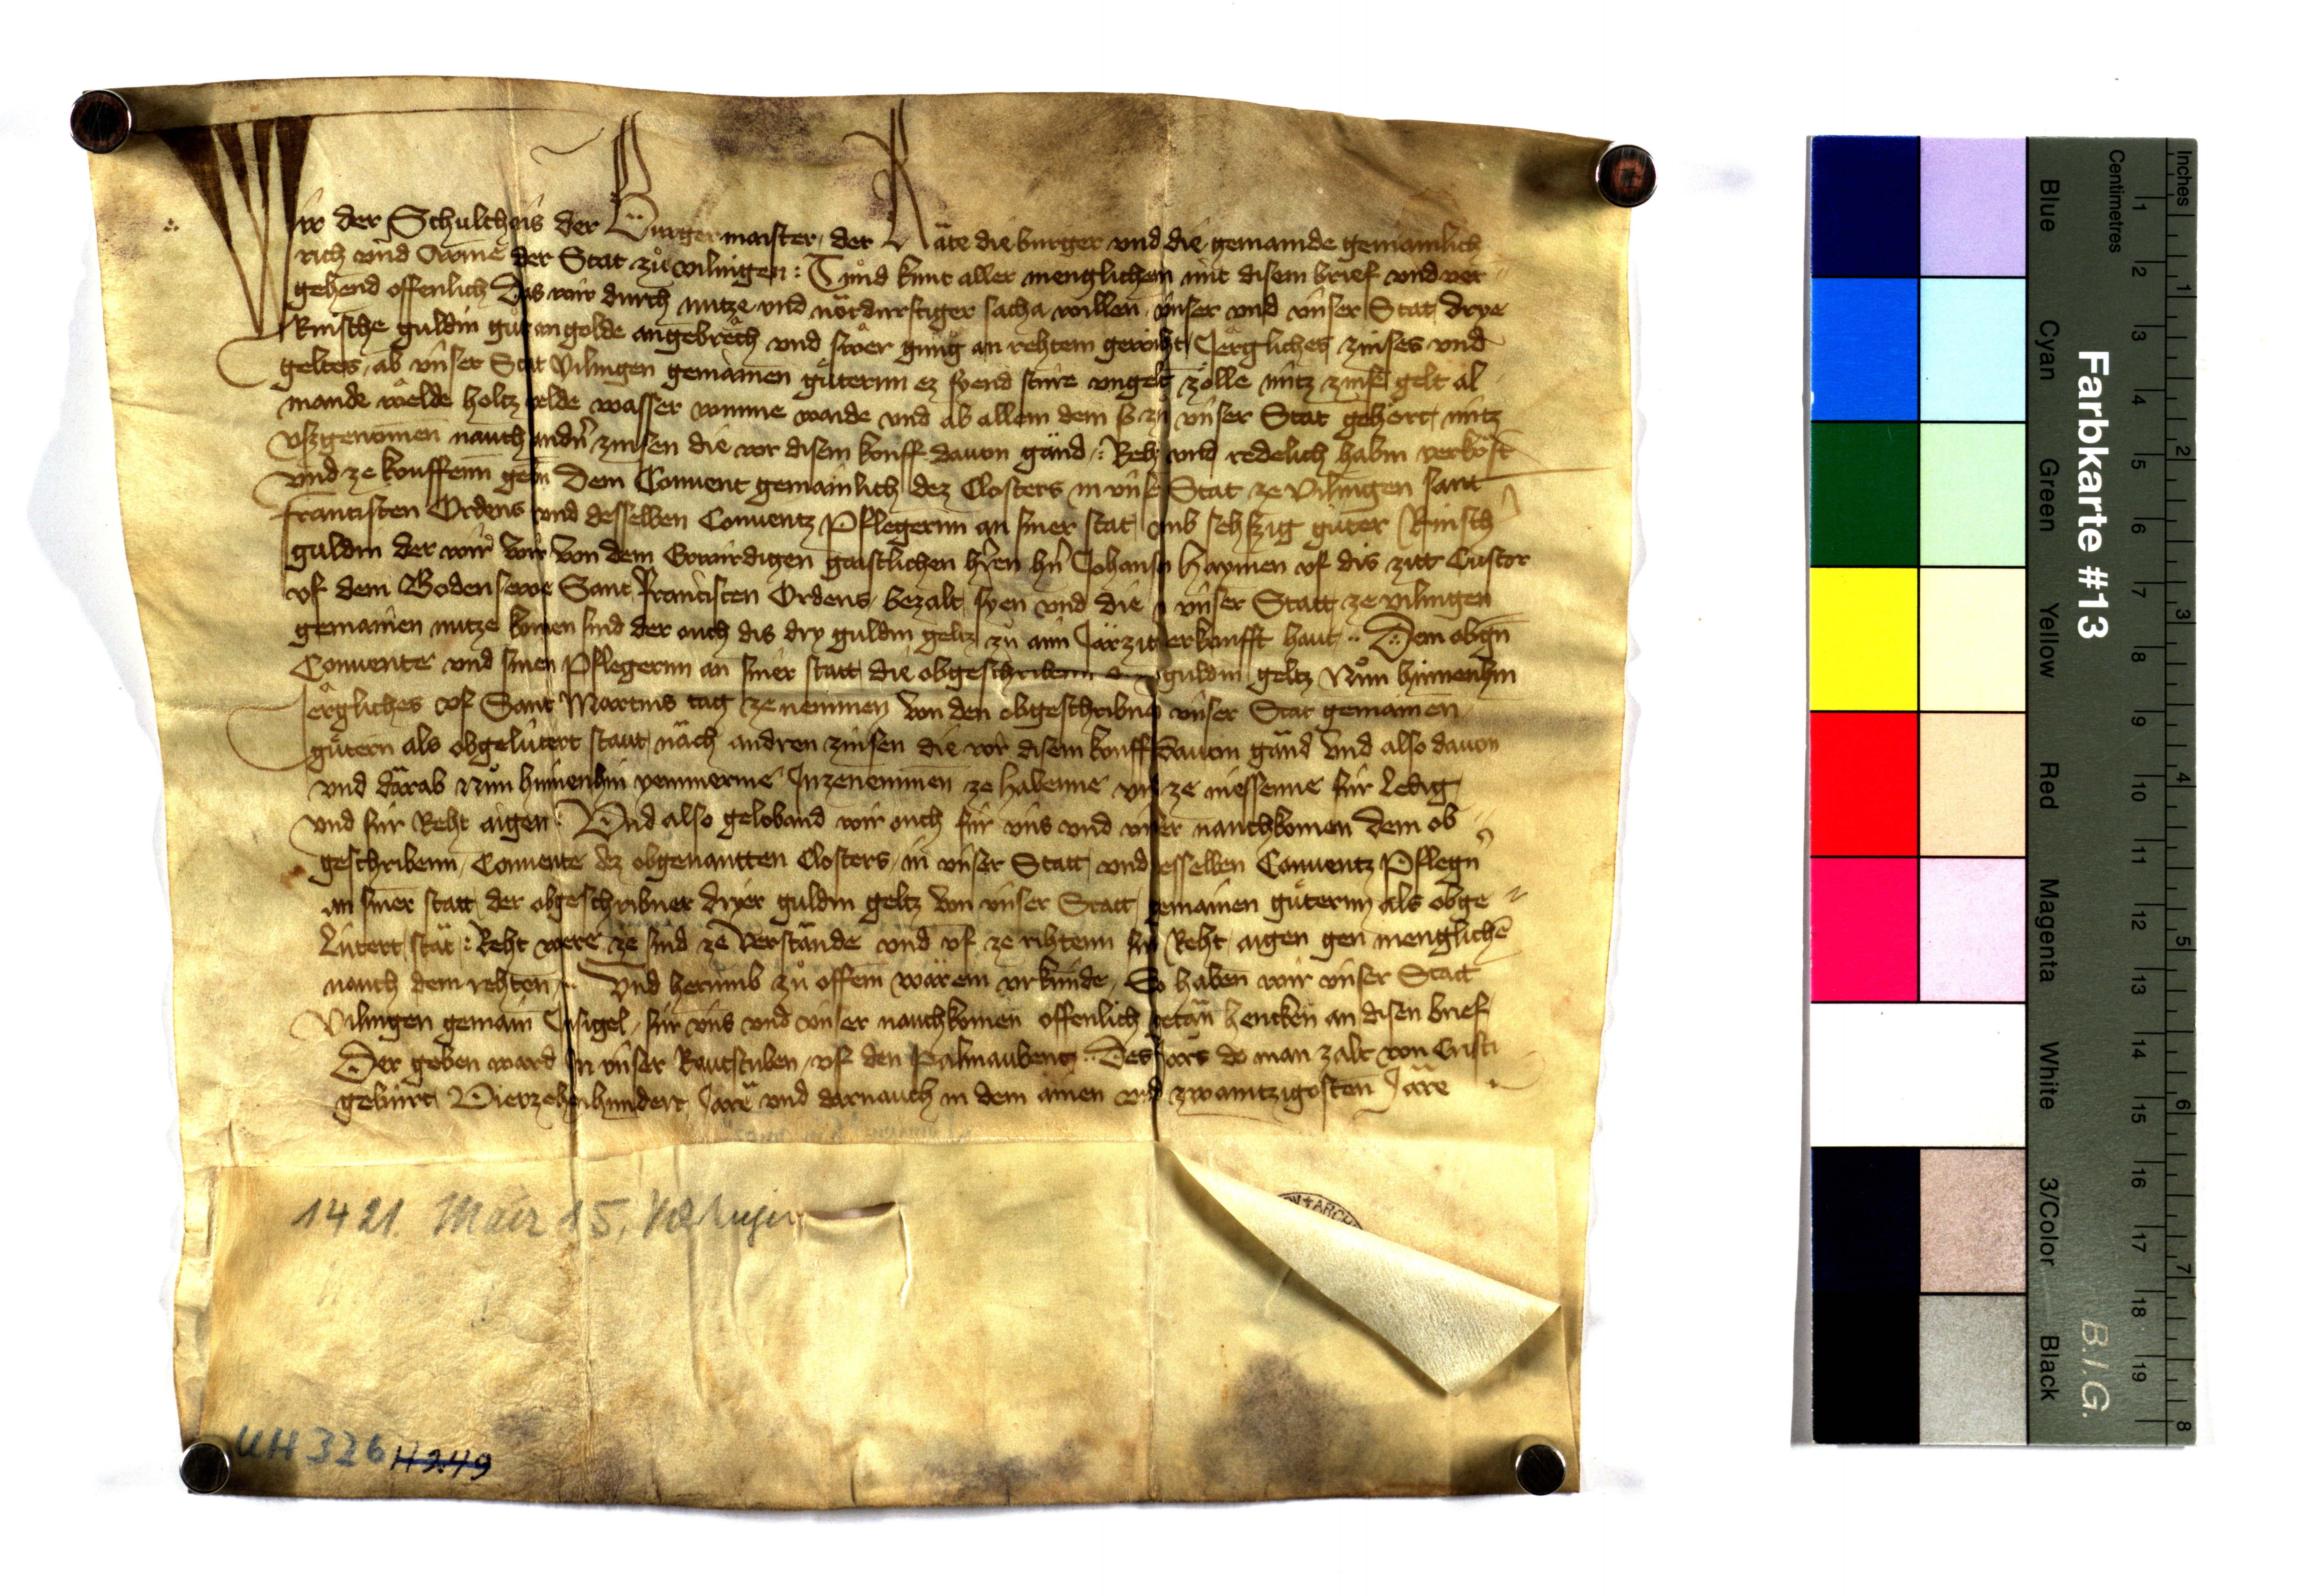 Wir der Schultheis der Burgermaister, der Räte die burger und die gemainde gemainlich
rich und Arme der Stat zů vilingen : Tůnd kunt aller menglichem mit disem brief und ver
gehend offenlich Das wir durch nutze und nötdurftiger sacha willen, ünser und ünser Stat drye
Rinsche guldin gůt an golde angebrech und swer gnůg an rehtem gewiht Jerglichez zinses und
geltes, ab ünser Stat Vilingen gemainen gůterm ez syend sture ungelt zölle nütz zinse gelt al
mande wälde holtz velde wasser wunne waide und ab allem dem so zů ünser Stat gehört, nütz
usgenomen nauch andn zinsen die vor disem kouff davon gänd : Reht und redelich habin verköft
und ze kouffenn gebn Dem Convent gemainlich dez Closters in ünser Stat ze Vilingen sant
francissen Ordens und desselben Conventz Pflegerinn an siner stat umb sehszig gůter Rinsch
guldin der wir von dem Erwirdigen gaistlichen hren hn Johansen Haymen uf dis zitt Custor
uf dem Bodensewe Sant francissen Ordens, bezalt syen und die in ünser Statt ze vilingen
gemainen nutze komen sind der ouch dis dry guldin geltz zů aim Järzit erkoufft haut .. Dem obgn
Convente und sinen Pflegerinn an siner statt die obgeschribenn guldin geltz Nůn hinnenhin
jerglichez uf Sant Martins tag ze nemmen von den obgeschribnen ünser Stat gemainen
gůtern als obgelütert staut näch andren zinsen die vor disem kouff davon gänd Und also davon
und därab Nůn hinnenhin yemmerme Inzenemmen ze habenne und ze niessenne für Ledig
und für Reht aigen : Und also geloband wir ouch für üns und ünser nauchkomen Dem ob
geschribenn, Convente dez obgenantten Closters, in ünser Statt, und desselben Conventz Pflegn
an siner statt, der obgeschribner dryer guldin geltz von ünser Statt gemainen gůterinn als obge
Lütert stät : Reht were ze sind ze Verstände und uf ze rihtenn für Reht, aigen gen menglichē
nauch dem rehten .. Und herumb zů offem wärem urkünde, So haben wir ünser Statt
Vilingen gemain Insigel, für üns und ünser nauchkomen offenlich getän hencken an disen brief
Der geben ward In ünser Rautstuben, uf den Palmaubent .. Des Jars do man zalt von Cristi
gebürt Vierzehenhundert Jare und darnauch in dem ainen und zwaintzigosten Järe
1421. März 15, Villingen
UH 326 H 2.49
Farbkarte #13
B.I.G.
Inches
Centimetres
1 2 3 4 5 6 7 8
1 2 3 4 5 6 7 8 9 10 11 12 13 14 15 16 17 18 19
Blue
Cyan
Green
Yellow
Red
Magenta
White
3/Color
Black